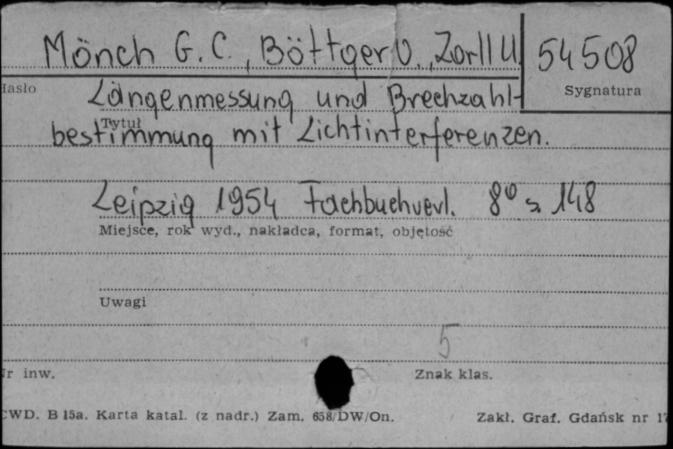 Mönch G. C., Böttger O., Zorll U. 54508
Hasło
Sygnatura
Längenmessung und Brechzahl-
Tytuł
bestimmung mit Lichtinterferenzen.
Leipzig 1954 Fachbuchverl. 8° s 148
Miejsce, rok wyd., nakładca, format, objętość
Uwagi
5
Nr inw.
Znak klas.
CWD. B 15a. Karta katal. (z nadr.) Zam. 658/DW/On.
Zakł. Graf. Gdańsk nr 17